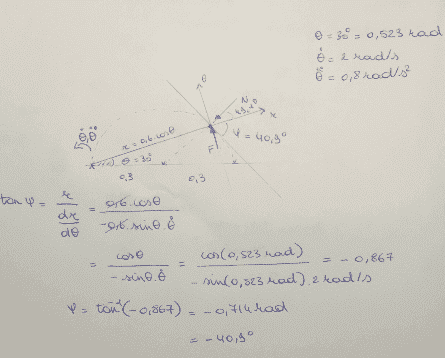 θ = 30° = 0,523 rad
θ̇ = 2 rad/s
θ̈ = 0,8 rad/s²
θ
N
49,1°
r
θ̇,θ̈
r = 0,6.cosθ
ψ = 40,9°
θ = 30°
F
0,3
0,3
tan ψ = r / dr/dθ = 0,6.cosθ / -0,6.sinθ.θ̇
= cosθ / -sinθ.θ̇ = cos(0,523 rad) / -sin(0,523 rad).2 rad/s = -0,867
ψ = tan⁻¹(-0,867) = -0,714 rad
= -40,9°